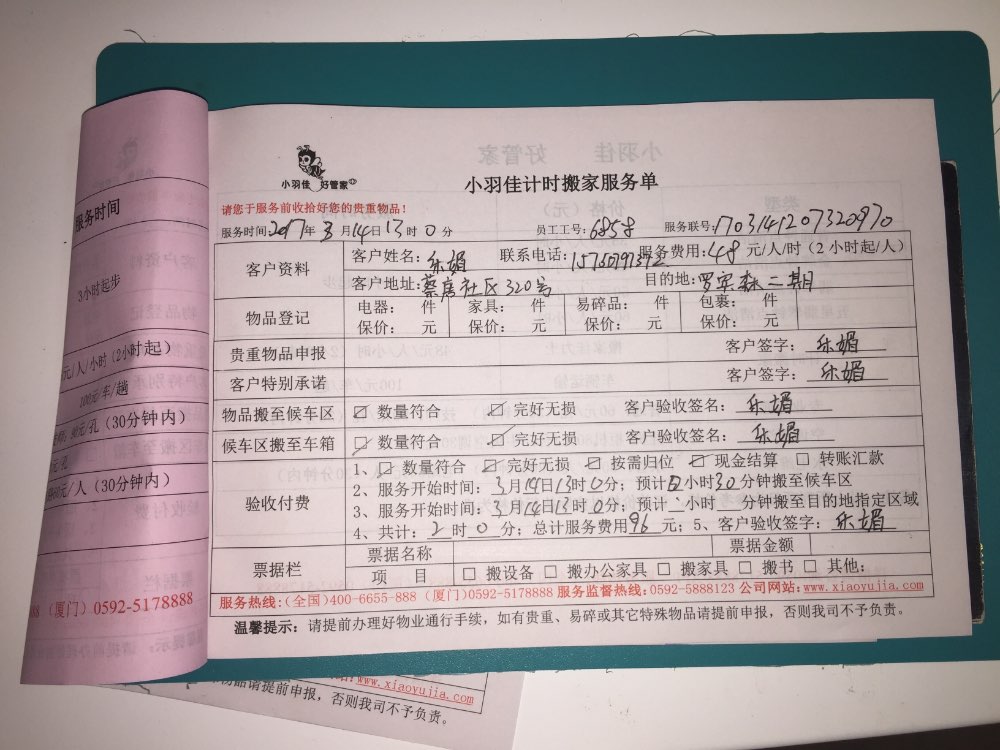 小羽佳 好管家
小羽佳计时搬家服务单
请您于服务前收拾好您的贵重物品!
服务时间:2017年3月14日13时0分 员工工号:6858 服务联号:1703141207320970
客户资料 客户姓名: 乐媚 联系电话: 服务费用:48元/人/时(2小时起/人)
客户地址:蔡唐社区320号 目的地:罗宾森二期
物品登记 电器: 件 家具: 件 易碎品: 件 包裹: 件
保价: 元 保价: 元 保价: 元 保价: 元
贵重物品申报 客户签字:乐媚
客户特别承诺 客户签字:乐媚
物品搬至候车区 ☑ 数量符合 ☑ 完好无损 客户验收签名:乐媚
候车区搬至车箱 ☑ 数量符合 ☑ 完好无损 客户验收签名:乐媚
验收付费 1、☑ 数量符合 ☑ 完好无损 ☑ 按需归位 ☑ 现金结算 ☐ 转账汇款
2、服务开始时间:3月14日13时0分;预计 小时30分钟搬至候车区
3、服务开始时间:3月14日13时0分;预计 小时 分钟搬至目的地指定区域
4、共计:2时0分;总计服务费用96元;5、客户验收签字:乐媚
票据栏 票据名称 票据金额
项 目 ☐ 搬设备 ☐ 搬办公家具 ☐ 搬家具 ☐ 搬书 ☐ 其他:
服务热线:(全国)400-6655-888 (厦门)0592-5178888 服务监督热线:0592-5888123 公司网站:www.xiaoyujia.com
温馨提示:请提前办理好物业通行手续,如有贵重、易碎或其它特殊物品请提前申报,否则我司不予负责。
服务时间
3小时起步
元/人/小时(2小时起)
100元/车/趟
元/孔(30分钟内)
元/孔
元/人(30分钟内)
(厦门)0592-5178888
www.xiaoyujia.com
物品请提前申报,否则我司不予负责。